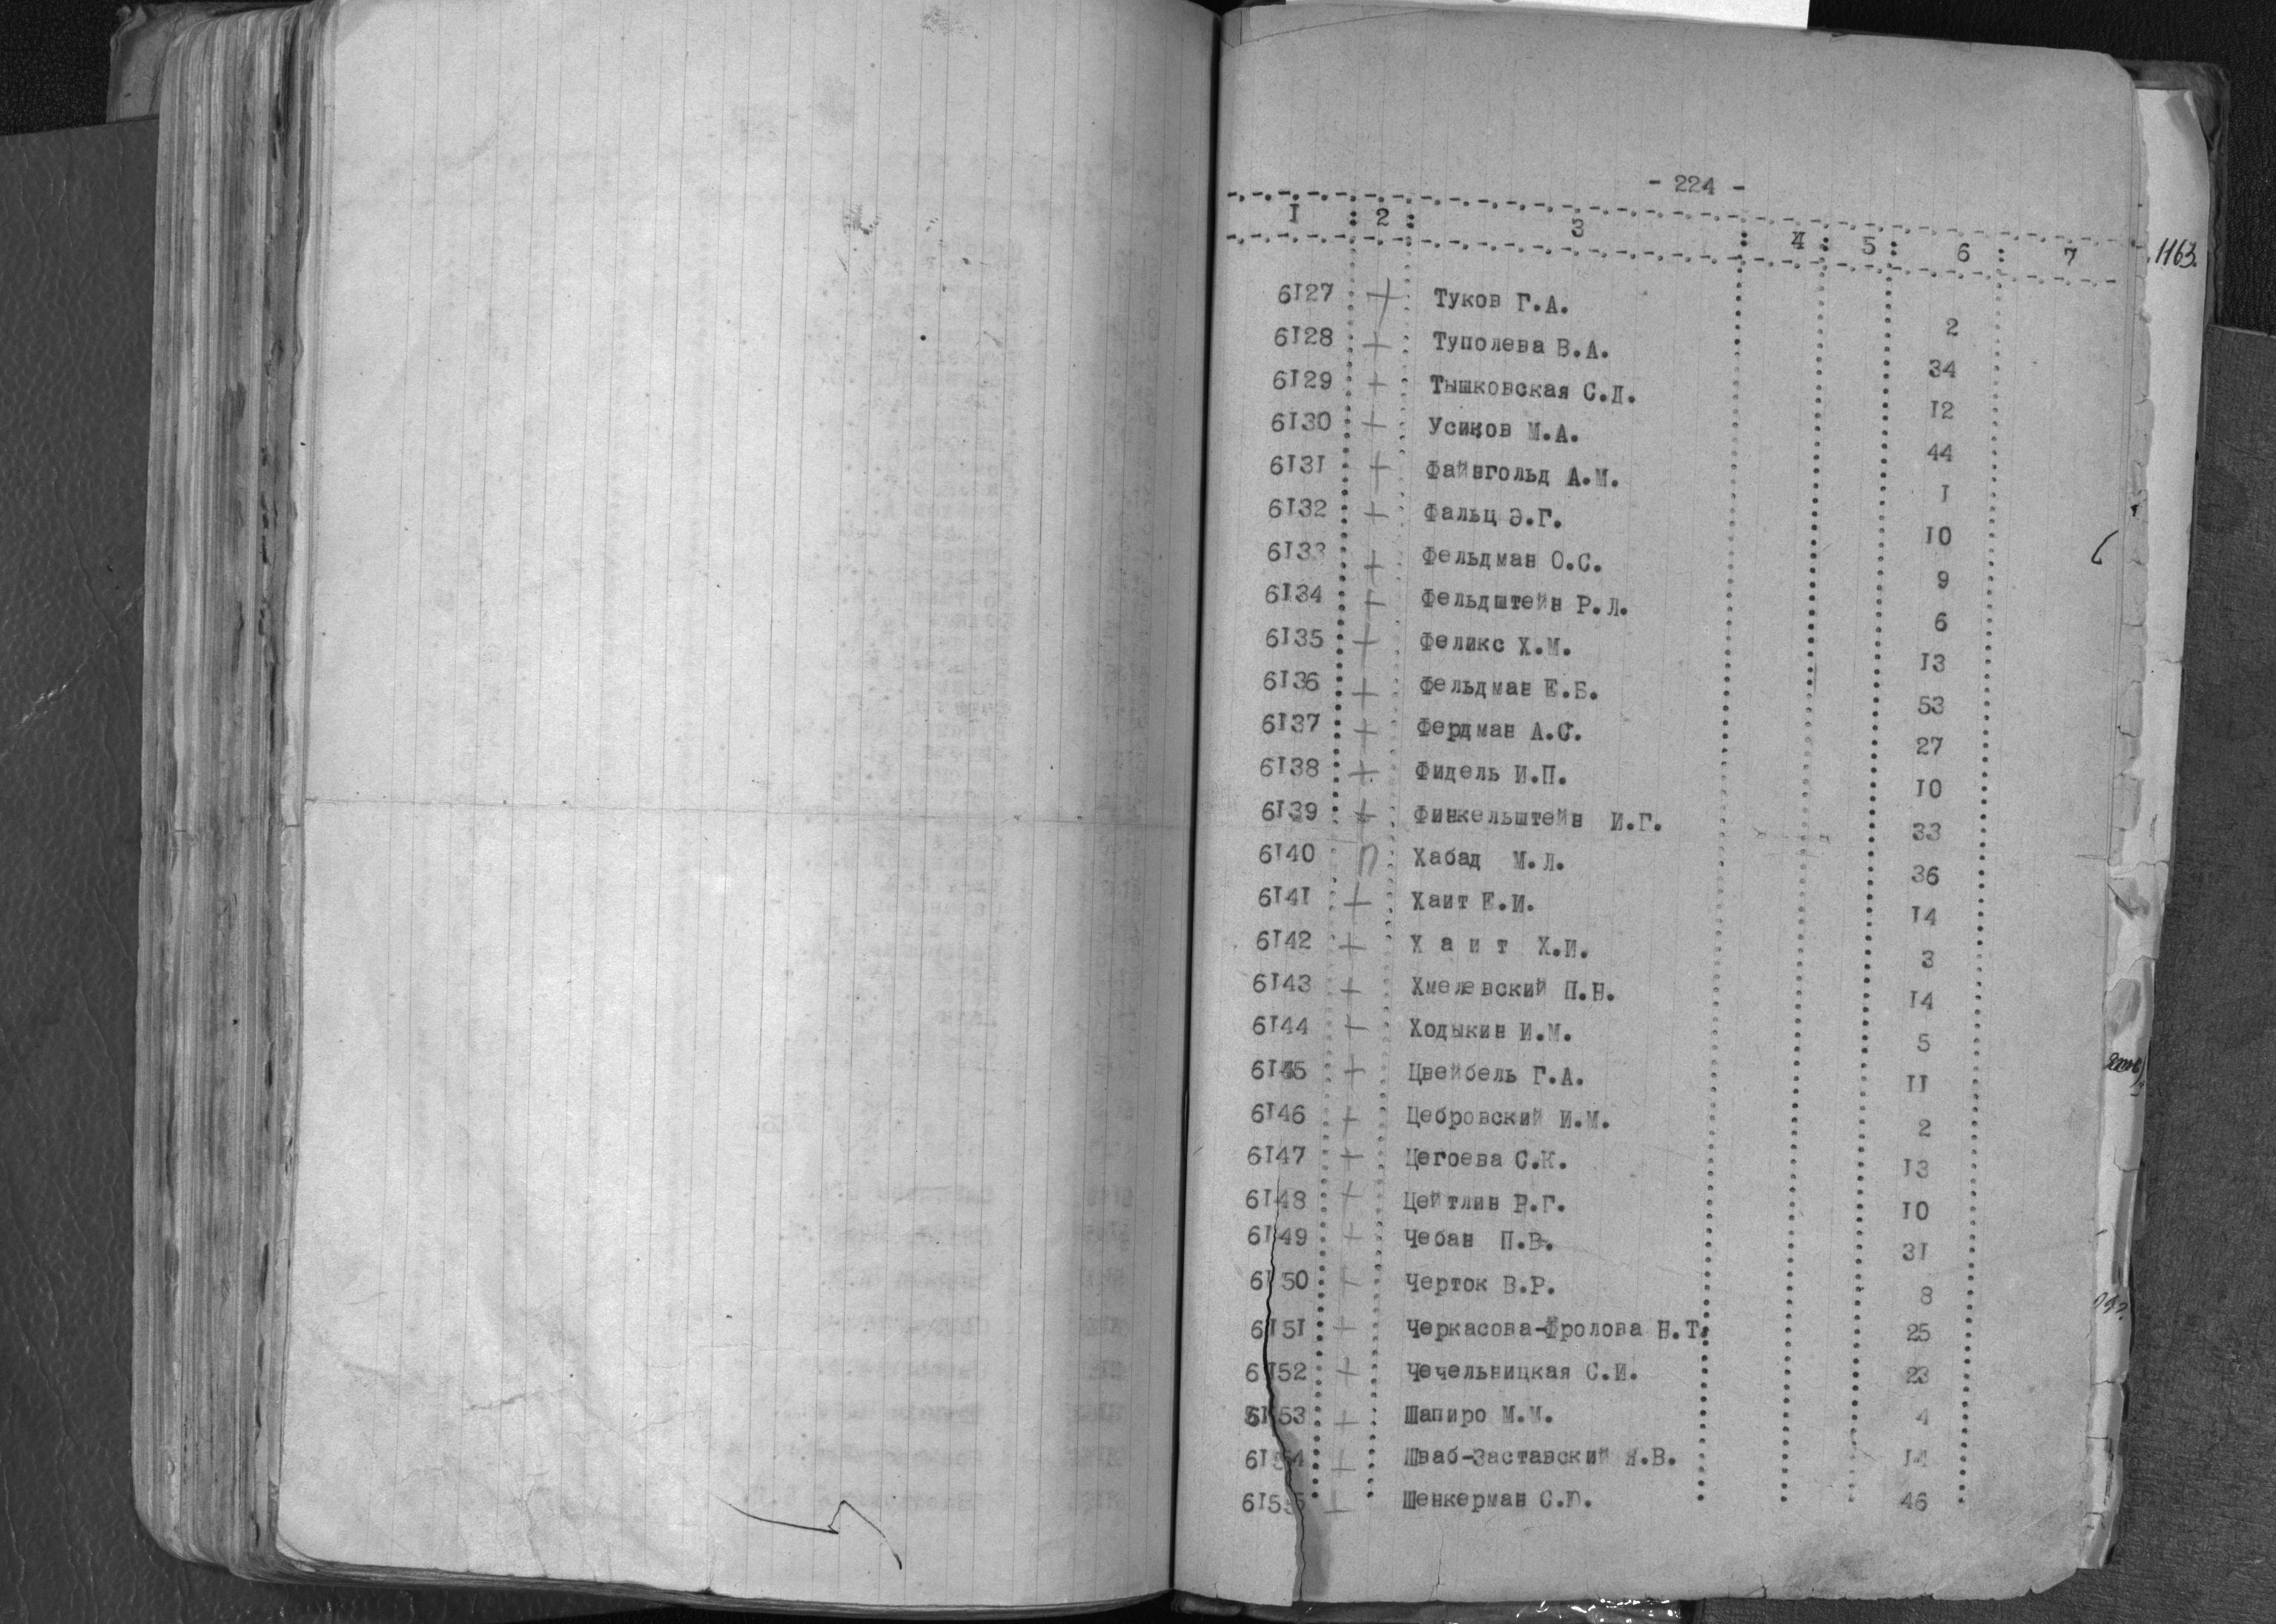 - 224 -
I : 2 : 3 : 4 : 5 : 6 : 7
1163.
6I27 + Туков Г.А. 2
6I28 + Туполева В.А. 34
6I29 + Тышковская С.Д. I2
6I30 + Усиков М.А. 44
6I3I + Файнгольд А.М. I
6I32 + Фальц Э.Г. I0
6I33 + Фельдман О.С. 9
6I34 + Фельдштейн Р.Л. 6
6I35 + Феликс Х.М. I3
6I36 + Фельдман Е.Б. 53
6I37 + Фердман А.С. 27
6I38 + Фидель И.П. I0
6I39 + Финкельштейн И.Г. 33
6I40 п Хабад М.Л. 36
6I4I + Хаит Е.И. I4
6I42 + Х а и т Х.И. 3
6I43 + Хмелевский П.Н. I4
6I44 + Ходыкин И.М. 5
6I45 + Цвейбель Г.А. II
6I46 + Цебровский И.М. 2
6I47 + Цегоева С.К. I3
6I48 + Цейтлин Р.Г. I0
6I49 + Чебан П.В. 3I
6I50 + Черток В.Р. 8
6I5I + Черкасова-Фролова Н.Т. 25
6I52 + Чечельницкая С.И. 23
6I53 + Шапиро М.М. 4
6I54 + Шваб-Заставский Я.В. I4
6I55 + Шенкерман С.Ю. 46